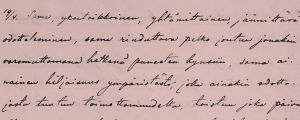 19/4. Sama, yksitoikkoinen, yhtämittainen, jännittävä
odotteleminen, sama riuduttava pelko joutua jonakin
vaarattomana hetkenä punaisten kynsiin, sama ai-
nainen hiljaisuus ympäristöstä, joka ainakin odotta-
jasta tuntuu toimettomuudelta, toistuu joka päivä